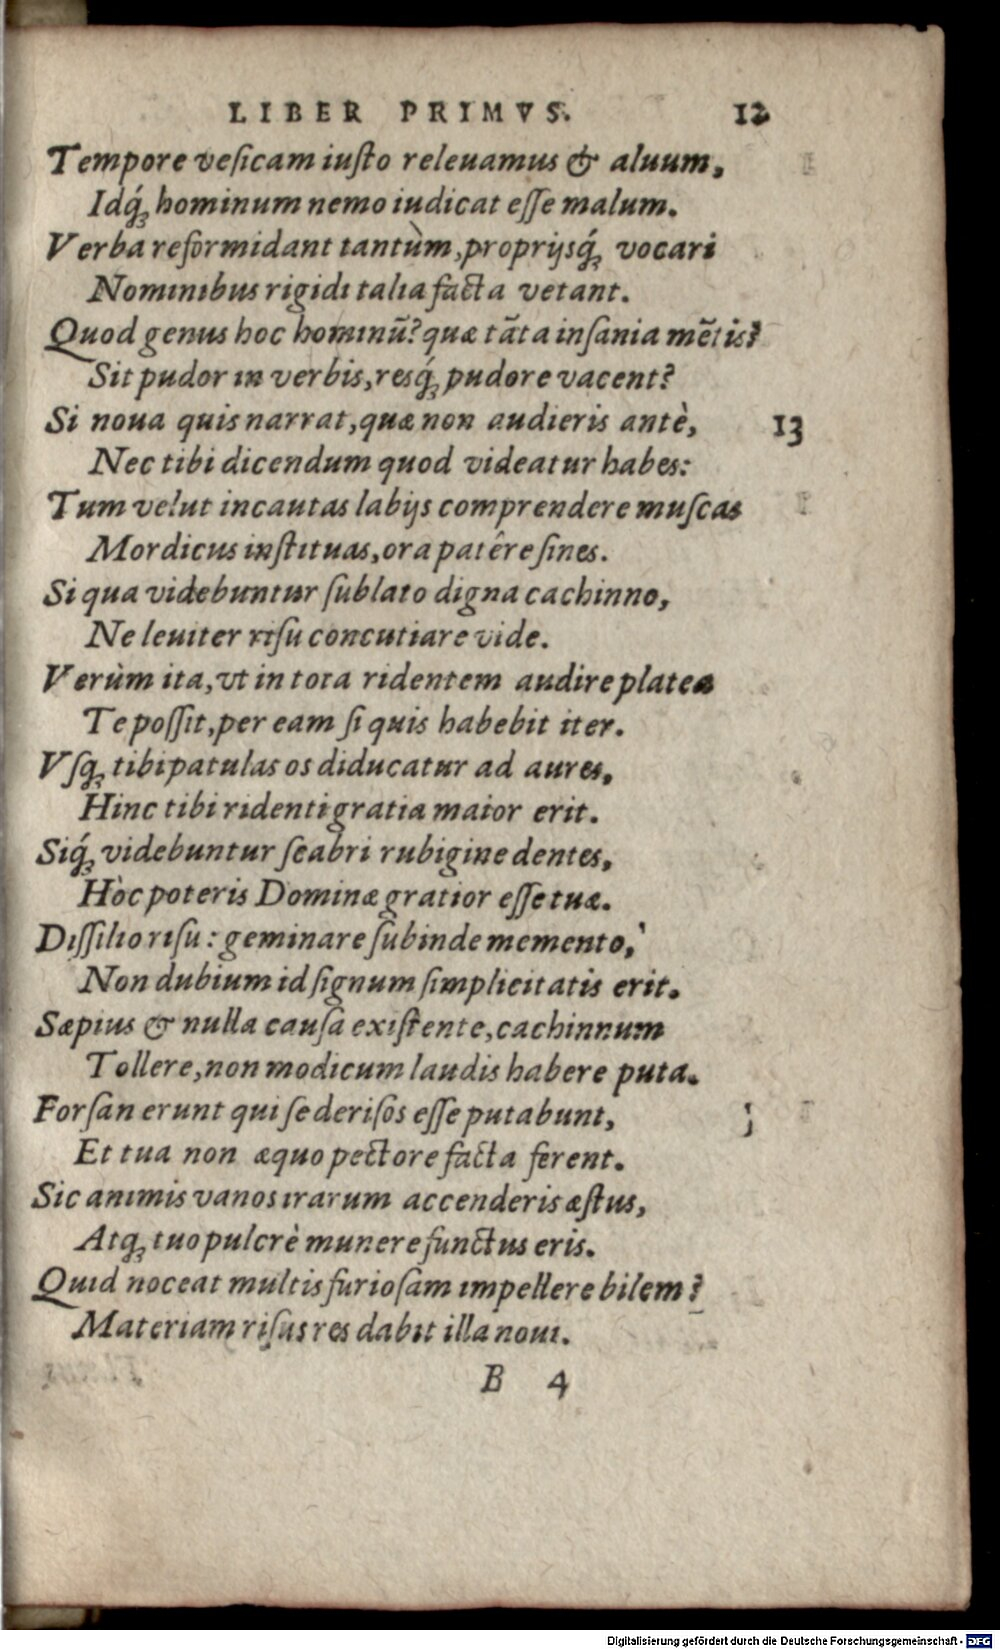 LIBER PRIMVS. 12
Tempore veſicam iuſto releuamus & aluum,
Idq́; hominum nemo iudicat eſſe malum.
Verba reformidant tantùm, proprijsq́; vocari
Nominibus rigidi talia facta vetant.
Quod genus hoc hominũ? quæ tãta inſania mẽtis?
Sit pudor in verbis, resq́; pudore vacent?
Si noua quis narrat, quæ non audieris antè, 13
Nec tibi dicendum quod videatur habes:
Tum velut incautas labijs comprendere muſcas
Mordicus inſtituas, ora patêre ſines.
Si qua videbuntur ſublato digna cachinno,
Ne leuiter riſu concutiare vide.
Verùm ita, vt in tota ridentem audire platea
Te poſſit, per eam ſi quis habebit iter.
Vſq; tibi patulas os diducatur ad aures,
Hinc tibi ridenti gratia maior erit.
Siq́; videbuntur ſcabri rubigine dentes,
Hòc poteris Dominæ gratior eſſe tuæ.
Diſſilio riſu: geminare ſubinde memento,
Non dubium id ſignum ſimplicitatis erit.
Sæpius & nulla cauſa exiſtente, cachinnum
Tollere, non modicum laudis habere puta.
Forſan erunt qui ſe deriſos eſſe putabunt,
Et tua non æquo pectore facta ferent.
Sic animis vanos irarum accenderis æſtus,
Atq; tuo pulcrè munere functus eris.
Quid noceat multis furioſam impellere bilem?
Materiam riſus res dabit illa noui.
B 4
Digitalisierung gefördert durch die Deutsche Forschungsgemeinschaft - DFG